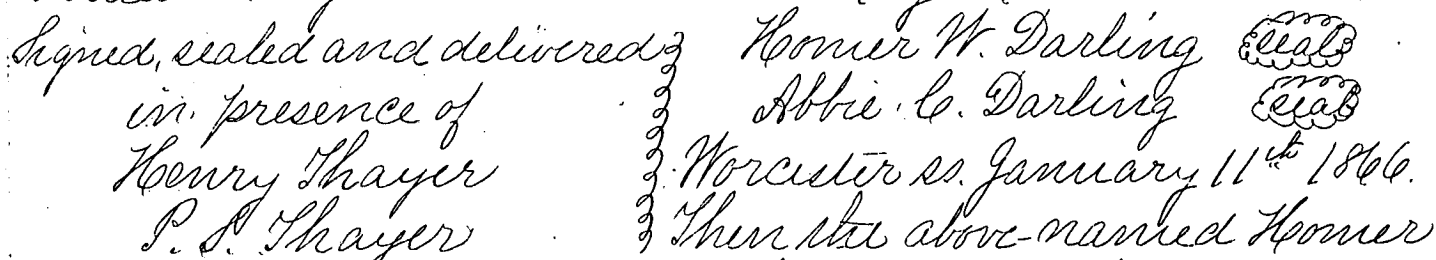 Signed, sealed and delivered
in presence of
Henry Thayer
P. S. Thayer
Homer W. Darling seal
Abbie C. Darling seal
Worcester ss. January 11th 1866.
Then the above-named Homer